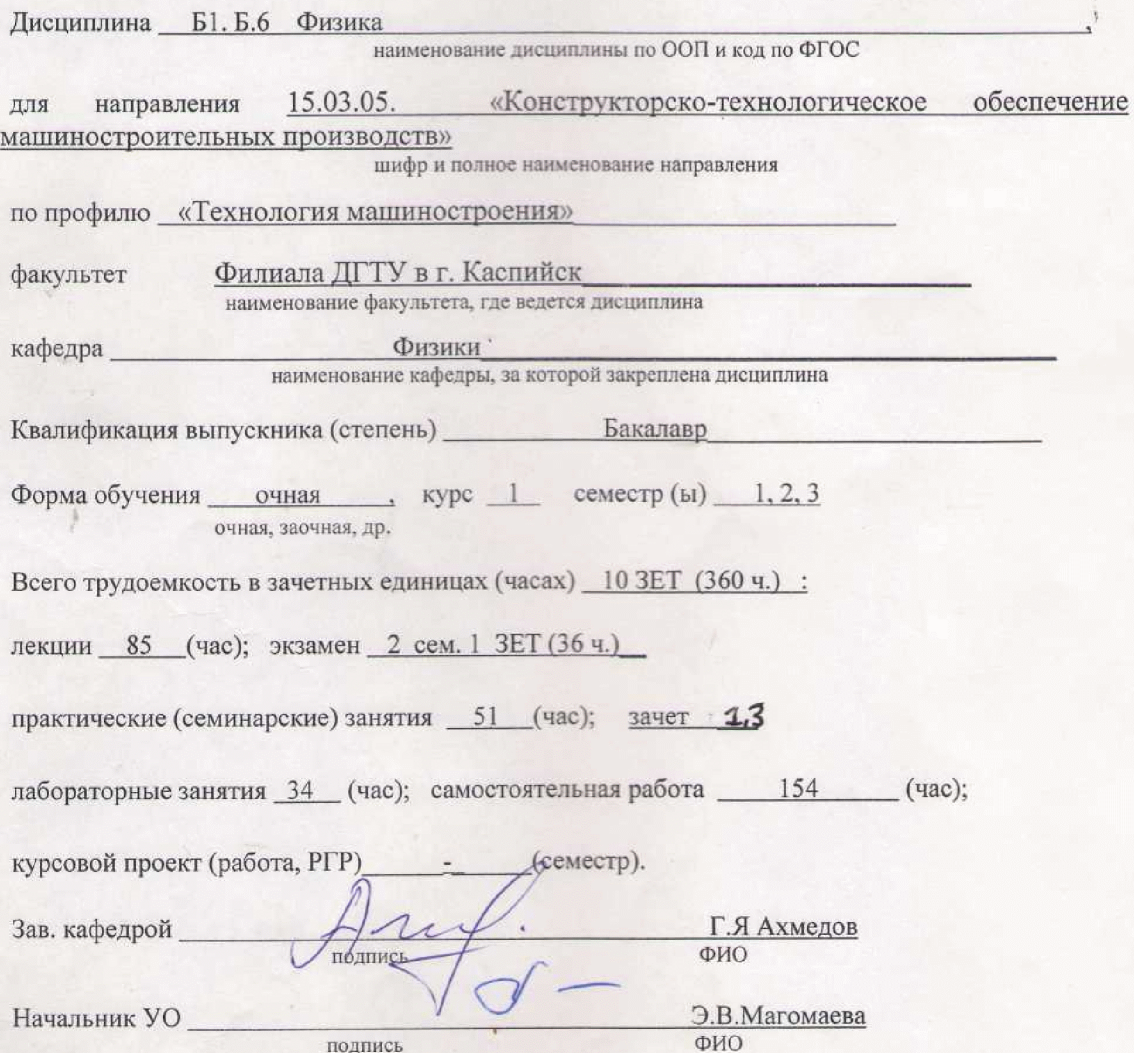 Дисциплина Б1. Б.6 Физика ,
наименование дисциплины по ООП и код по ФГОС
для направления 15.03.05. «Конструкторско-технологическое обеспечение
машиностроительных производств»
шифр и полное наименование направления
по профилю «Технология машиностроения»
факультет Филиала ДГТУ в г. Каспийск
наименование факультета, где ведется дисциплина
кафедра Физики
наименование кафедры, за которой закреплена дисциплина
Квалификация выпускника (степень) Бакалавр
Форма обучения очная , курс 1 семестр (ы) 1, 2, 3
очная, заочная, др.
Всего трудоемкость в зачетных единицах (часах) 10 ЗЕТ (360 ч.) :
лекции 85 (час); экзамен 2 сем. 1 ЗЕТ (36 ч.)
практические (семинарские) занятия 51 (час); зачет 1,3
лабораторные занятия 34 (час); самостоятельная работа 154 (час);
курсовой проект (работа, РГР) - (семестр).
Зав. кафедрой Г.Я Ахмедов
подпись ФИО
Начальник УО Э.В.Магомаева
подпись ФИО